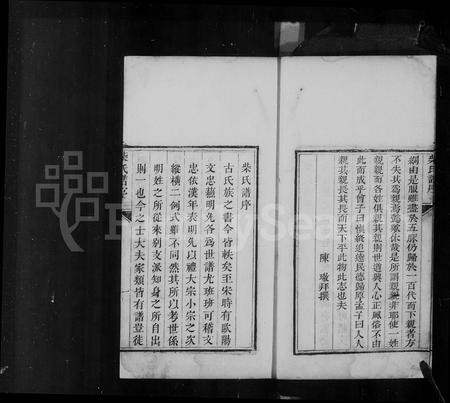 柴氏譜序
嗣由是服雖盡於五脉仍歸於一百代而下親者方
不失其為親焉為敵休哉是所謂親親非耶使一姓
親親而各姓俱親其親則世道與人心正風俗不由
此而成乎曾子曰慎終追遠民德歸厚孟子曰人人
親其親長其長而天下平此物此志也夫
陳墩拜撰
柴氏譜序
古氏族之書今皆軼矣至宋時有歐陽
文忠蘇明允各為世譜尤班班可稽文
忠依漢年表明允以禮大宗小宗之次
縱橫二例式雖不同然其所以考世係
明姓之所從來別支派知身之所自出
則一也今之士大夫家類皆有譜豈徒
柴氏譜序
一